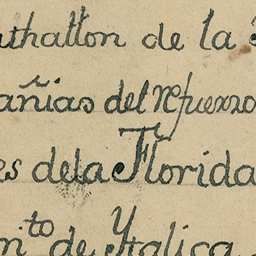 athallon de la
añias del refuerzo
es dela Florida
nto de Ytalica